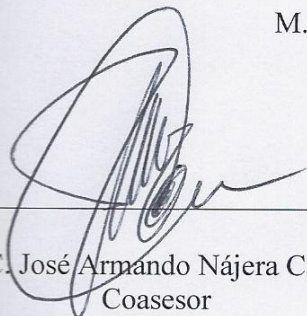 M.
José Armando Nájera C.
Coasesor